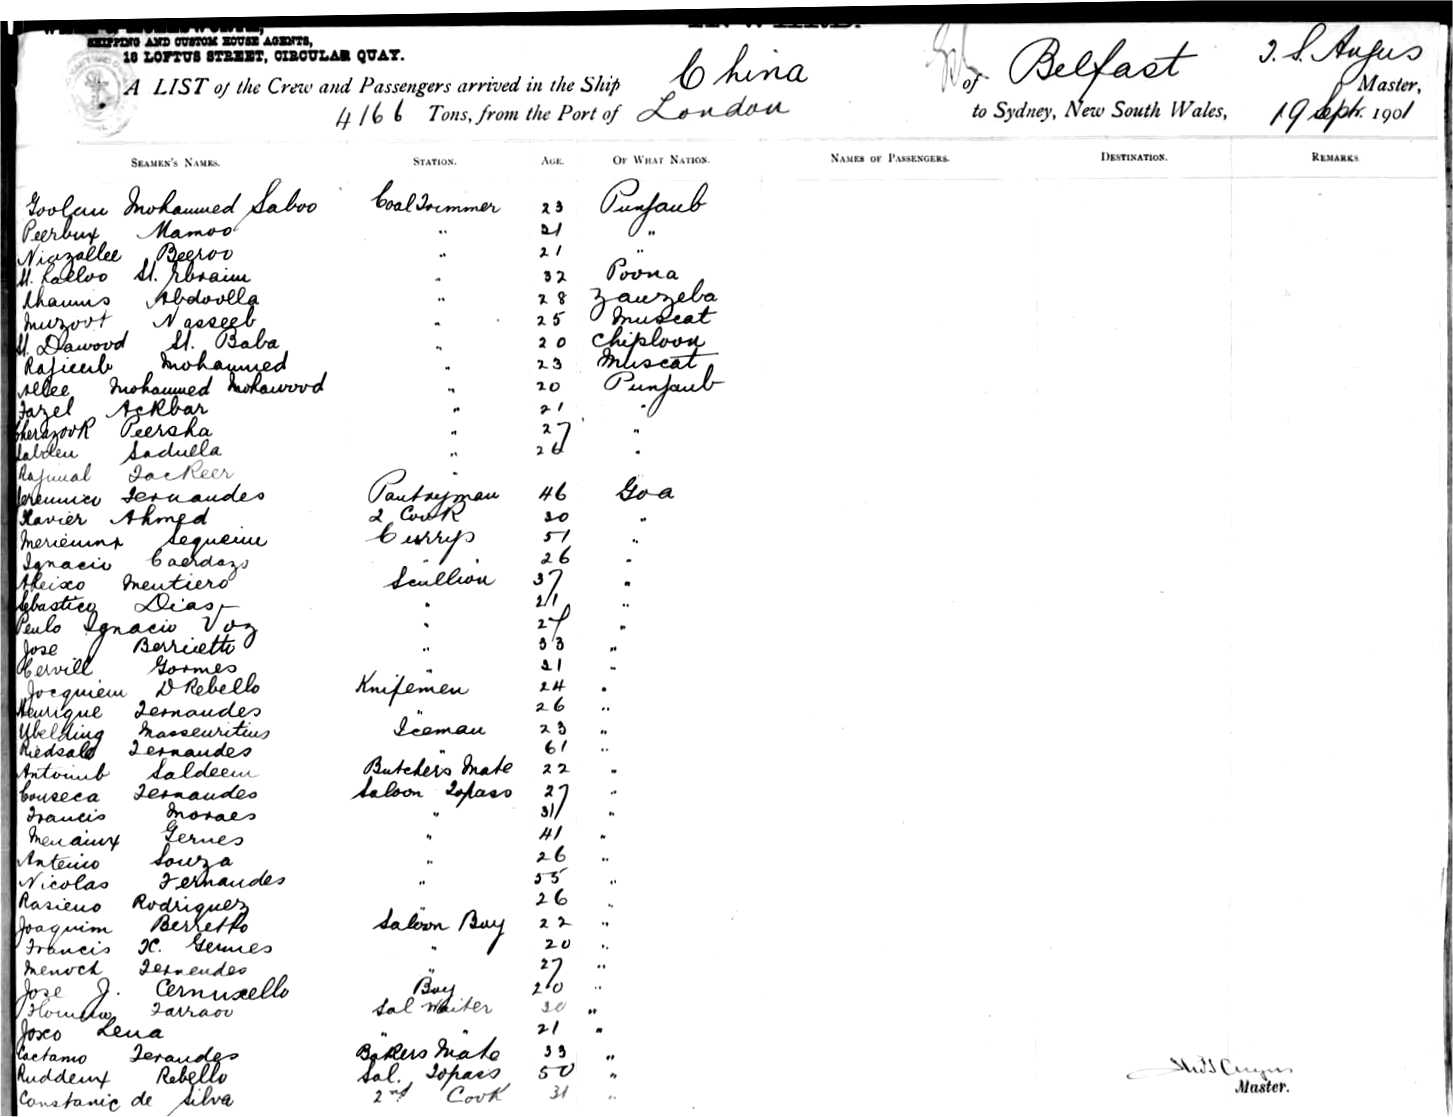 SHIPPING AND CUSTOM HOUSE AGENTS,
16 LOFTUS STREET, CIRCULAR QUAY.
A LIST of the Crew and Passengers arrived in the Ship China of Belfast J. S. Angus Master,
4166 Tons, from the Port of London to Sydney, New South Wales, 19 Sept. 1901
SEAMEN'S NAMES. STATION. AGE. OF WHAT NATION. NAMES OF PASSENGERS. DESTINATION. REMARKS
Goolam Mohammed Saboo Coal Trimmer 23 Punjaub
Peerbux Mamoo " 21 "
Niazallee Beeroo " 21 "
St. Kalloo St. Ebraim " 32 Poona
Abdoolla " 28 Zanzeba
Nasseeb " 25 Muscat
St. Dawood St. Baba " 20 Chiploon
Rajieeb Mohammed " 23 Muscat
Allee Mohammed Mohawood " 20 Punjaub
Fazel Ackbar " 21 "
Peersha " 27 "
Sadulla " 26 "
Fackeer "
Fernandes Pantryman 46 Goa
Xavier Ahmed 2 Cook 30 "
Sequeira Currys 51 "
Ignacio Caerdozo " " 26 "
Aleixo Mentiero Scullion 37 "
Sebastico Dias " 21 "
Paulo Ignacio Voz " 27 "
Jose Berrietto " 33 "
Cervill Gormes " 21 "
Jocquiem D Rebello Knifemen 24 "
Henrique Fernandes " 26 "
Iceman 23 "
Fernandes " 61 "
Saldeem Butchers Mate 22 "
Conseca Fernandes Saloon Topass 27 "
Francis Moraes " 31 "
Gernes " 41 "
Antenio Souza " 26 "
Nicolas Fernandes " 55 "
Rasieno Rodriguez " 26 "
Joaquim Berretto Saloon Boy 22 "
Francis X. Gernes " 20 "
Menoch Fernendes " 27 "
Jose J. Cernuxello Boy 20 "
Farraoo Sal Waiter 20 "
Joxo Lena " " 21 "
Caetamo Ferandes Bakers Mate 33 "
Ruddeux Rebello Sal. Topass 50 "
Constanic de Silva 2nd Cook 31 "
Angus
Master.